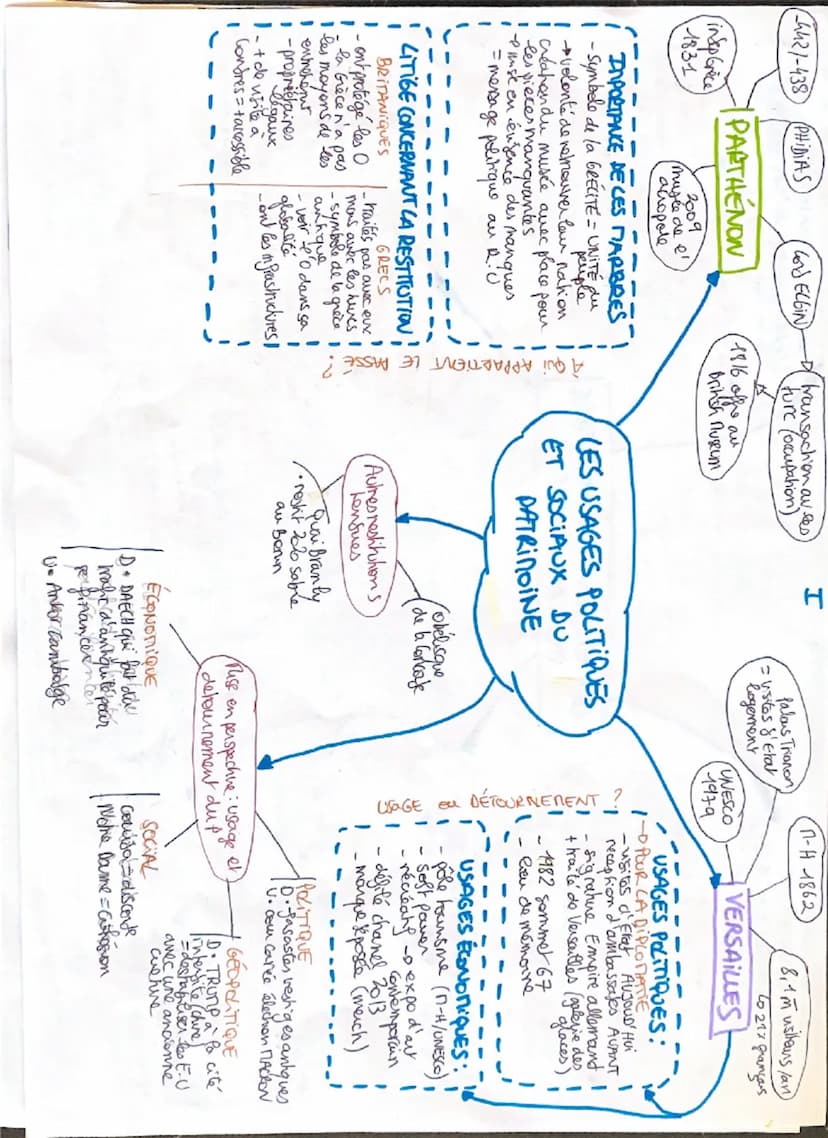 I
LES USAGES POLITIQUES
ET SOCIAUX DU
PATRIMOINE
PARTHÉNON
-442/-438
PHIDIAS
indep Grèce
1831
2009
musée de l'
acropole
Lord ELGIN
transaction avec les
turc (occupation)
1816 offre au
British Museum
IMPORTANCE DE CES MARBRES
- symbole de la GRÉCITÉ = UNITÉ du
peuple
→ volonté de retrouver leur nation
création du musée avec place pour
les pièces manquantes
→ mise en évidence des manques
= message politique au R.U
LITIGE CONCERNANT LA RESTITUTION
BRITANIQUES
- ont protégé les O
- la Grèce n'a pas
les moyens de les
entretenir
- propriétaires
légaux
- + de visite à
Londres = + accessible
GRECS
- traités pas avec eux
mais avec les turcs
- symbole de la grèce
antique
- voir l'O dans sa
globalité
- ont les infrastructures
À QUI APPARTIENT LE PASSÉ ?
VERSAILLES
palais Trianon
= visites d'Etat
logement
UNESCO
1979
M-H 1862
8,1 M visiteurs/an
↳ 21% français
USAGES POLITIQUES :
→ POUR LA DIPLOMATIE
- visites d'Etat AUJOURD'HUI
réception d'ambassades AVANT
- signature Empire allemand
+ traité de Versailles (galerie des
glaces)
- 1982 sommet G7
- lieu de mémoire
USAGES ÉCONOMIQUES :
- pôle tourisme (M-H/UNESCO)
- soft power
- récréatif → expo d'art
contemporain
- défilé chanel 2013
- marque déposée (merch)
USAGE OU DÉTOURNEMENT ?
Autres restitutions
tendues
obélisque
de la Concorde
Quai Branly
• restit 2020 sabre
au Bénin
Mise en perspective : usage et
détournement du P
ÉCONOMIQUE
D • DAECH qui fait du
trafic d'antiquité pour
U • Ankor Cambodge
SOCIAL
= discorde
Notre Dame = cohésion
POLITIQUE
vestiges antiques
U • cour carré élection MACRON
GÉOPOLITIQUE
D • TRUMP à la cité
interdite (chine)
les E.U
avec une ancienne
culture